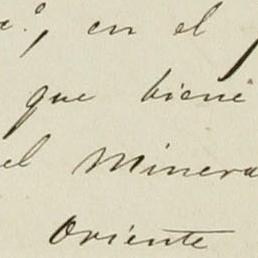 en el
que biene
el Minera
Oriente